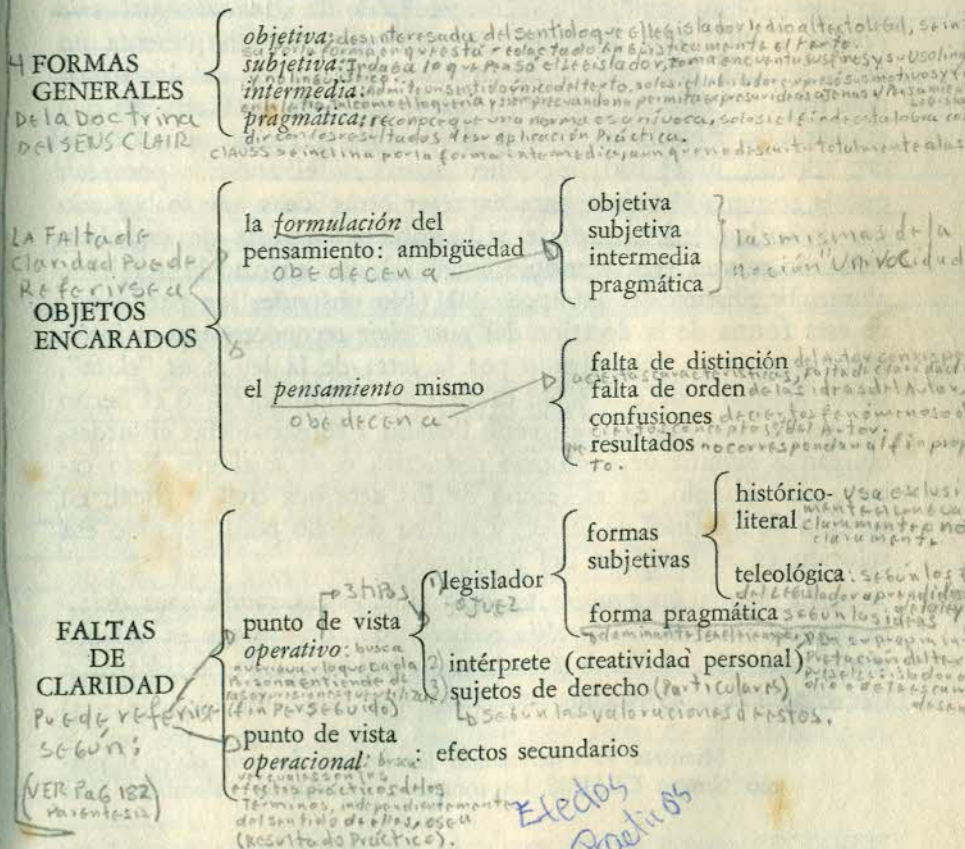 4 FORMAS
GENERALES
De la Doctrina
Del SENS CLAIR
objetiva: desinteresada del sentido que el legislador le dio al texto legal, se in
la forma en que está redactado lingüísticamente el texto.
subjetiva: Indaga lo que pensó el legislador, toma en cuenta sus fines y su uso ling
y no lingüístico.
intermedia: admite un sentido único del texto, solo si el legislador expresó sus motivos y
en la letra tal como el lo quería y siempre cuando no permita expresar ideas ajenas
pragmática: reconoce que una norma es unívoca, solo si el fin de esta logra coin
dir con los resultados de su aplicación Práctica.
CLAUSS se inclina por la forma intermedia, aunque no descuita totalmente a las
LA FAlta de
Claridad Puede
Referirse a
OBJETOS
ENCARADOS
la formulación del
pensamiento: ambigüedad
obedecen a
objetiva
subjetiva
intermedia
pragmática
las mismas de la
noción "UNIVOCidad
el pensamiento mismo
obedecen a
falta de distinción del Autor con respe
a ciertas características, falta de claridad
falta de orden de las ideas del Autor.
confusiones de ciertos fenómenos o
ciertos conceptos del Autor.
resultados no correspondan al fin prop
to.
FALTAS
DE
CLARIDAD
Puede referirse
SEGÚN:
(VER PaG 182)
Parentesis)
punto de vista
operativo: busca
averiguar lo que cada
Persona entiende de
las expresiones que utiliza
(fin PerSeGuido)
3 tipos
1) legislador
o JUEZ
formas
subjetivas
histórico-
literal
Usa exclusi
claramente no
claramente
teleológica: según los
del legislador
forma pragmática según las ideas
2) intérprete (creatividad personal)
3) sujetos de derecho (Particulares)
según las valoraciones de estos.
punto de vista
operacional: busca
ver cuales son los
efectos prácticos de los
Términos, independientemente
del sentido de ellos, o sea
(Resultado Práctico).
: efectos secundarios
Efectos
Practicos